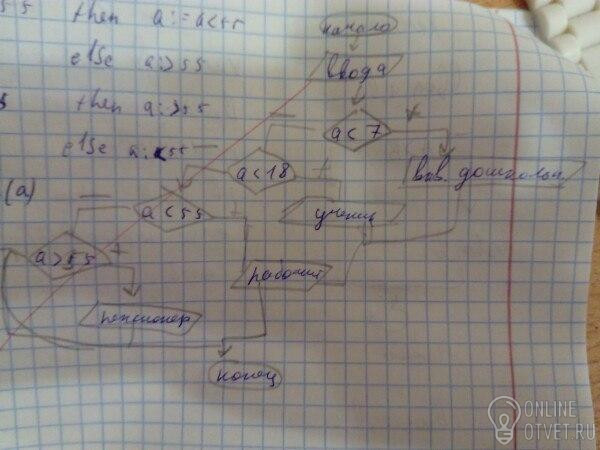 55 then a:=a<55
else a:>55
then a:>55
else a:<55
(a)
начало
ввод a
a<7
+
−
выв. дошкольн
a<18
+
−
ученик
a<55
+
−
рабочий
a>55
+
пенсионер
конец
ONLINE
OTVET.RU